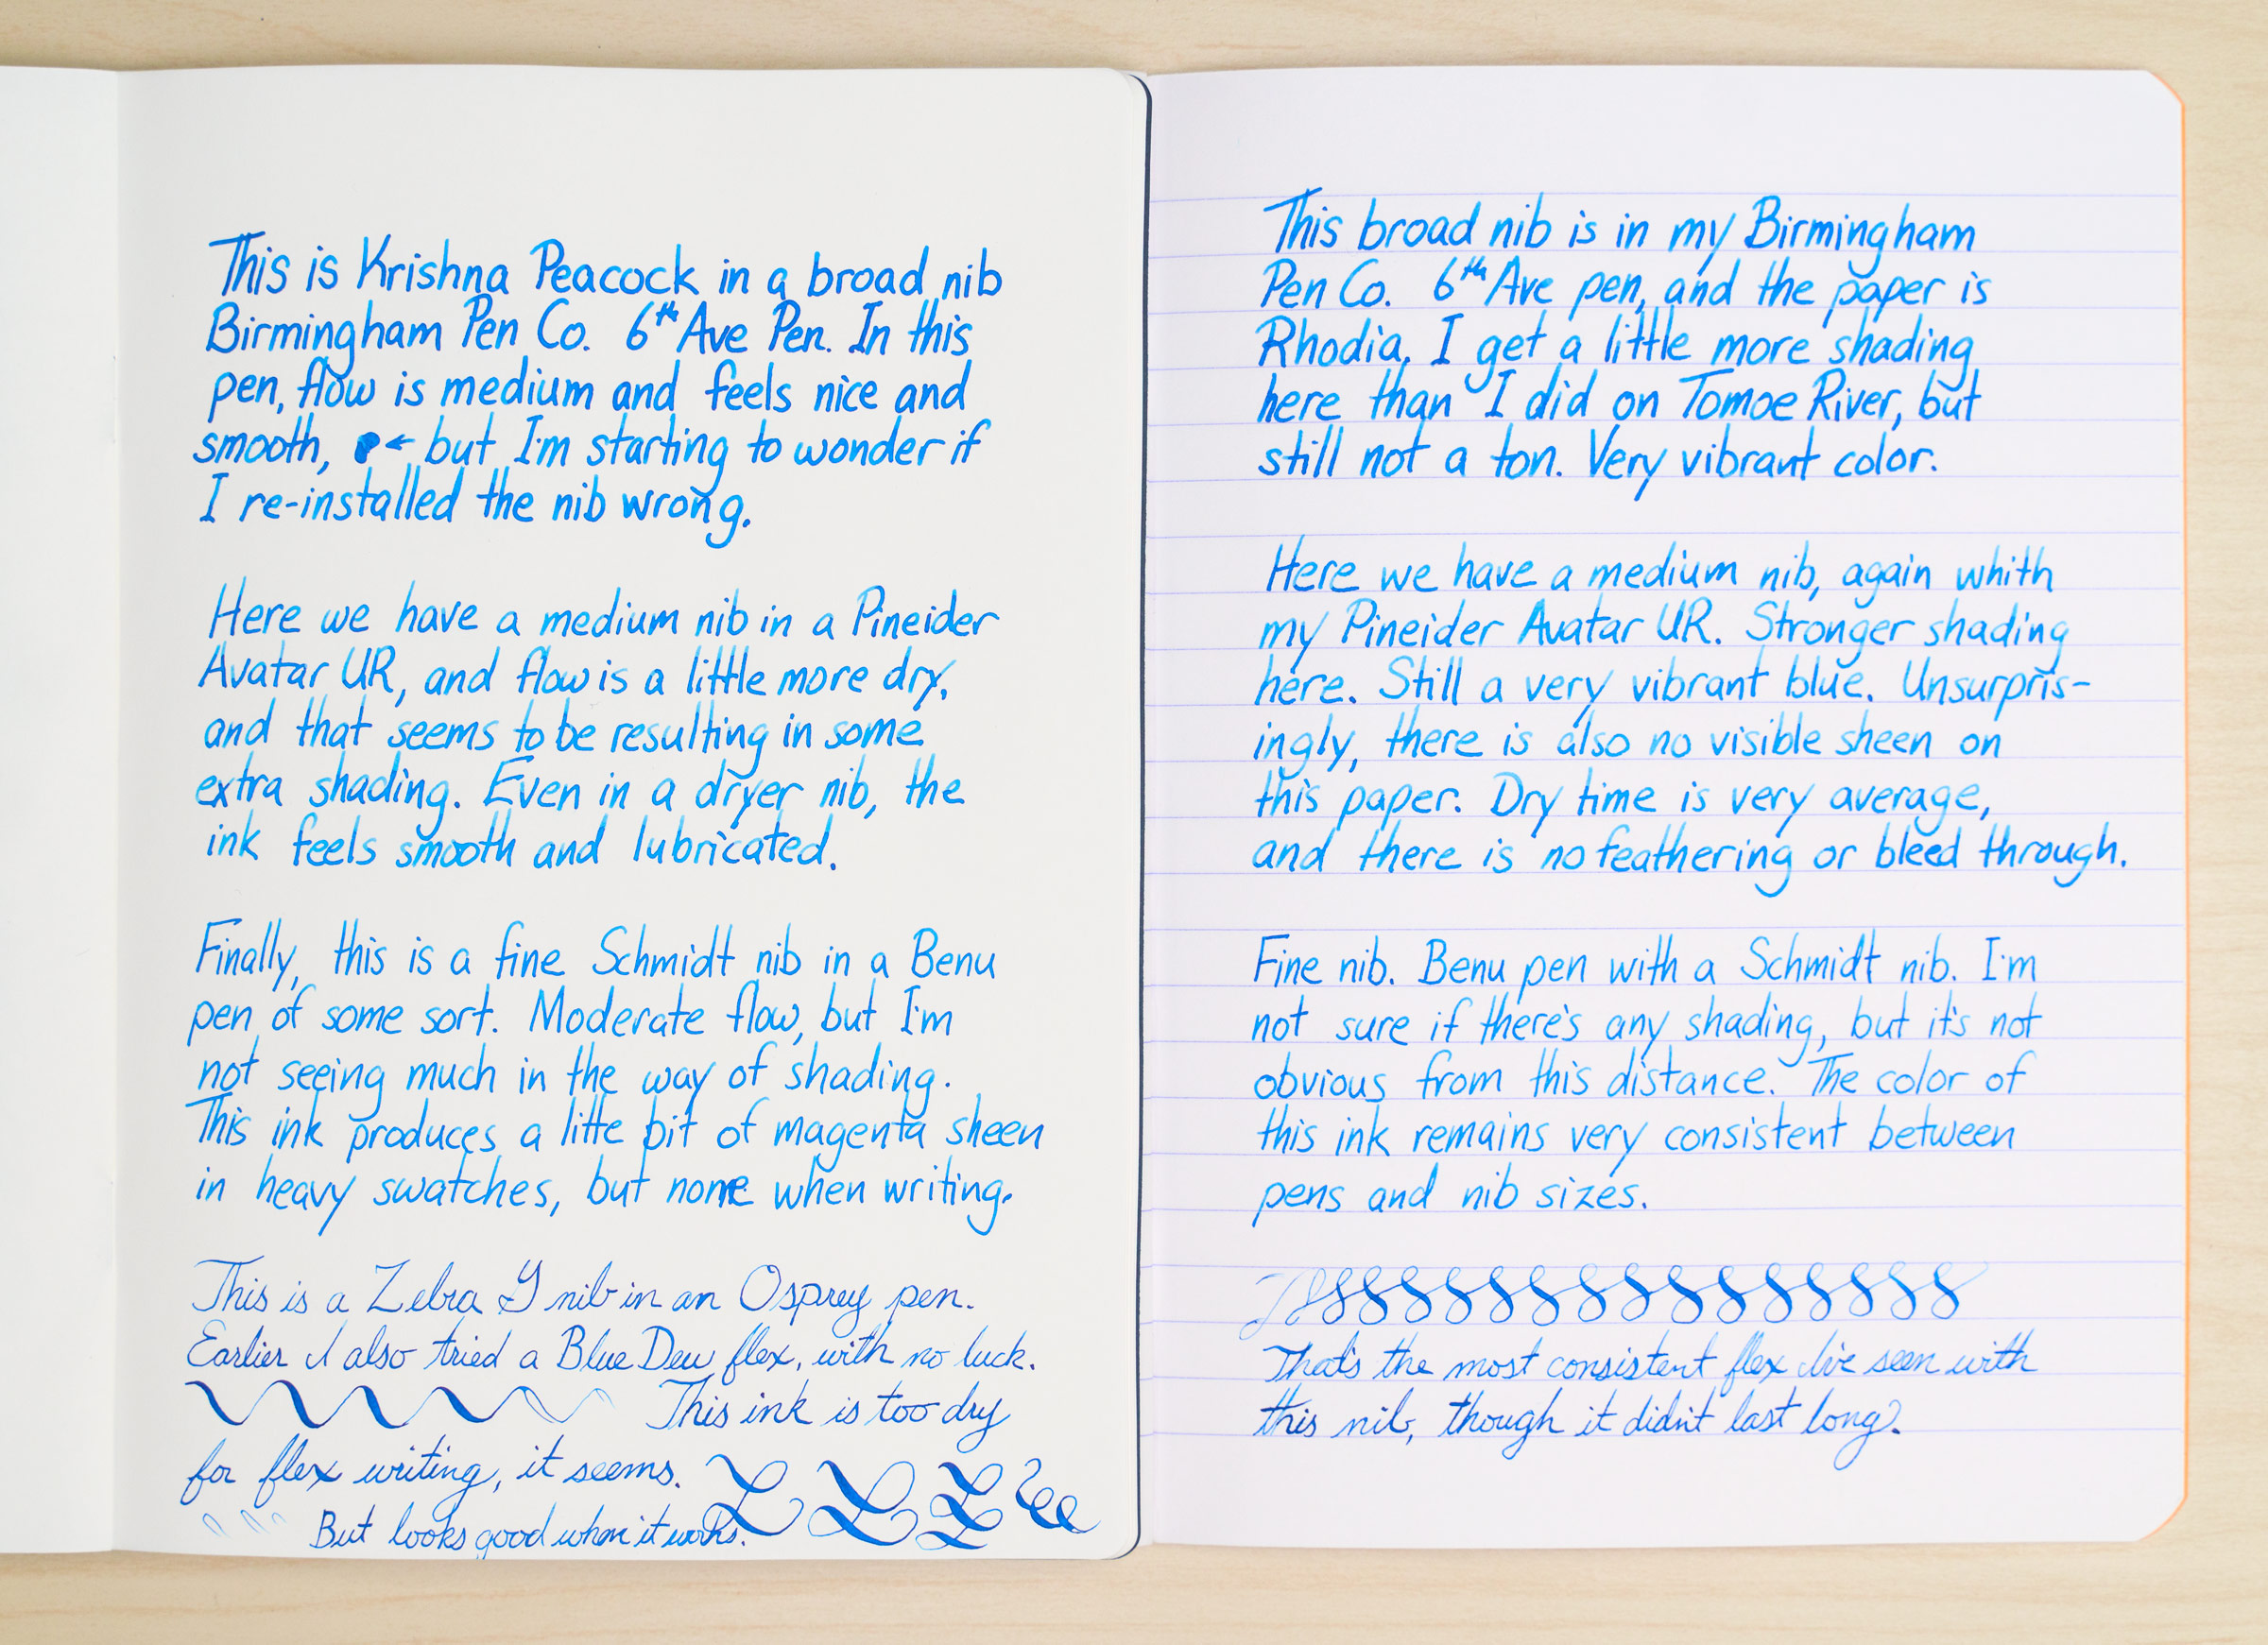 This is Krishna Peacock in a broad nib
Birmingham Pen Co. 6th Ave Pen. In this
pen, flow is medium and feels nice and
smooth, ← but I'm starting to wonder if
I re-installed the nib wrong.
Here we have a medium nib in a Pineider
Avatar UR, and flow is a little more dry,
and that seems to be resulting in some
extra shading. Even in a dryer nib, the
ink feels smooth and lubricated.
Finally, this is a fine Schmidt nib in a Benu
pen of some sort. Moderate flow, but I'm
not seeing much in the way of shading.
This ink produces a litte bit of magenta sheen
in heavy swatches, but none when writing.
This is a Zebra G nib in an Osprey pen.
Earlier I also tried a Blue Dew flex, with no luck.
This ink is too dry
for flex writing, it seems.
But looks good when it works.
This broad nib is in my Birmingham
Pen Co. 6th Ave pen, and the paper is
Rhodia. I get a little more shading
here than I did on Tomoe River, but
still not a ton. Very vibrant color.
Here we have a medium nib, again whith
my Pineider Avatar UR. Stronger shading
here. Still a very vibrant blue. Unsurpris-
ingly, there is also no visible sheen on
this paper. Dry time is very average,
and there is no feathering or bleed through.
Fine nib. Benu pen with a Schmidt nib. I'm
not sure if there's any shading, but it's not
obvious from this distance. The color of
this ink remains very consistent between
pens and nib sizes.
That's the most consistent flex I've seen with
this nib, though it didn't last long.